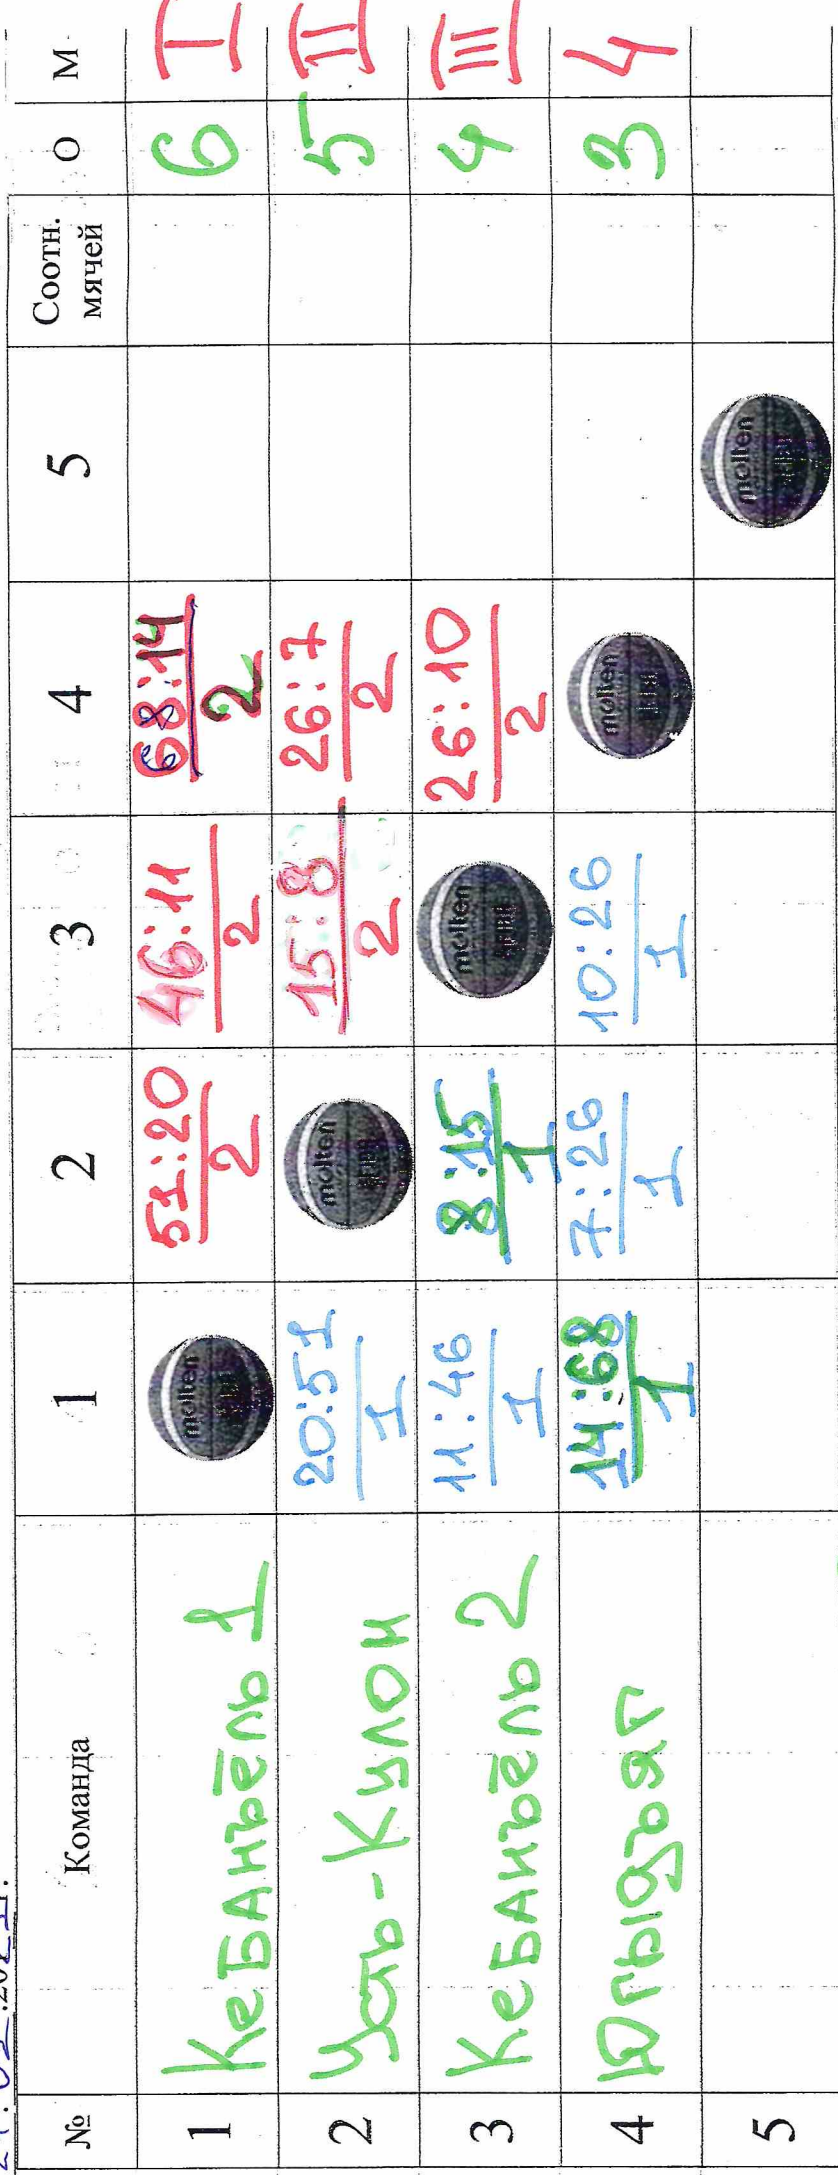 № Команда 1 2 3 4 5 Соотн. мячей О М
1 КеБАНЪЁЛЬ 1 molten 51:20 2 46:11 2 68:14 2 6 I
2 Усть-Кулом 20:51 1 molten 15:8 2 26:7 2 5 II
3 КеБАНЪЁЛЬ 2 11:46 1 8:15 1 molten 26:10 2 4 III
4 Югыдъяг 14:68 1 7:26 1 10:26 1 molten 3 4
5 molten